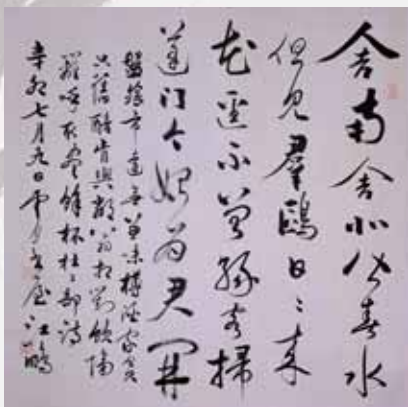 舍南舍北皆春水
但見羣鷗日〻來
花逕不曾緣客掃
蓬門今始為君開
盤飧市遠無兼味樽酒家貧
只舊醅肯與鄰翁相對飲隔
籬呼取盡餘杯杜工部詩
辛卯七月 日 江鵬